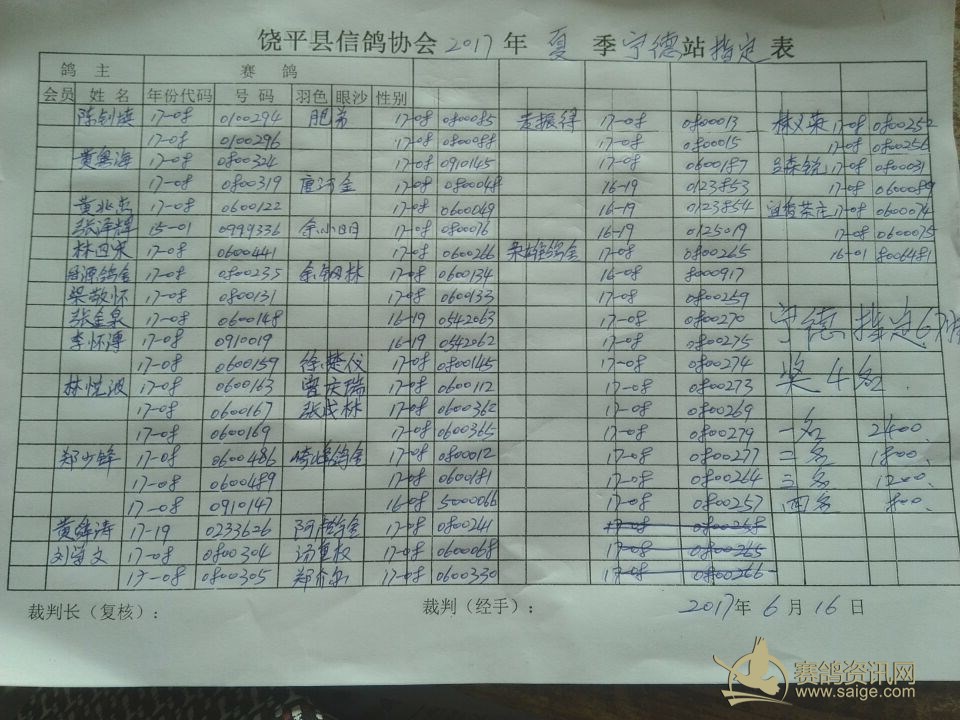 饶平县信鸽协会2017年 夏 季宁德站指定表
鸽 主 赛 鸽
会员 姓 名 年份代码 号 码 羽色 眼沙 性别
17-08 0100294 胞弟 17-08 0800085 黄振得 17-08 0800013 林义荣 17-08 0800252
17-08 0100296 17-08 0800088 17-08 080015 17-08 0800256
17-08 0800324 17-08 0910145 17-08 0600187 17-08 080031
17-08 0800319 唐河金 17-08 080048 16-19 0123853 17-08 0600089
黄兆杰 17-08 0600122 17-08 0600049 16-19 0123854 17-08 0600074
张泽辉 15-01 0999336 余小明 17-08 080076 16-19 0125019 17-08 0600075
林四荣 17-08 0600441 17-08 0600266 17-08 0800265 16-01 8006481
17-08 0800235 余钢林 17-08 0600134 16-08 8000917
梁敬怀 17-08 0800131 17-08 0600133 17-08 0800259
张金泉 17-08 0600148 16-19 0542063 17-08 0800270 宁德指定67羽
李怀溥 17-08 0910019 16-19 0542062 17-08 0800275
17-08 0600159 徐楚仪 17-08 0800145 17-08 0800274 奖4名
林悦波 17-08 0600163 曹庆瑞 17-08 0600112 17-08 0800273
17-08 0600167 张成林 17-08 0600362 17-08 0800269
17-08 0600169 17-08 0600365 17-08 0800279 一名 2400
郑少锋 17-08 0600486 17-08 0800012 17-08 0800277 二名 1800
17-08 0600489 17-08 0600181 17-08 0800264 三名 1200
17-08 0910147 16-08 5000066 17-08 0800257 四名 800
17-19 0233626 17-08 0800241 17-08 0800258
刘学文 17-08 0800304 汤重权 17-08 0600068 17-08 0800265
17-08 0800305 17-08 0600330 17-08 0800266
裁判长（复核）： 裁判（经手）： 2017年 6月16日
赛鸽资讯网
www.saige.com